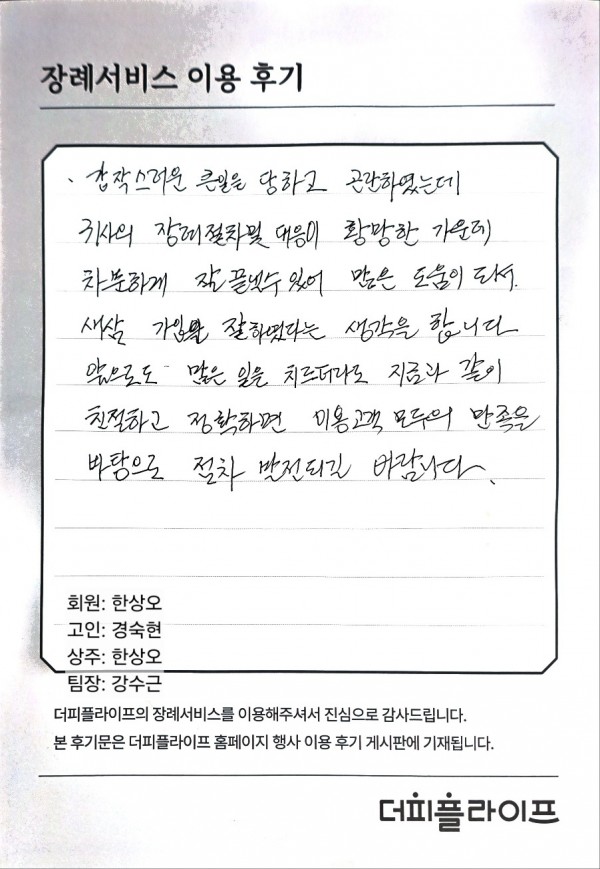 장례서비스 이용 후기
· 갑작스러운 큰일을 당하고 곤란하였는데
귀사의 장례절차및 대응이 황망한 가운데
차분하게 잘 끝낼수 있어 많은 도움이 되서.
새삼 가입을 잘하였다는 생각을 합니다
앞으로도 많은 일을 치르더라도 지금과 같이
친절하고 정확하면 이용고객 모두의 만족을
바탕으로 점차 발전되길 바랍니다.
회원: 한상오
고인: 경숙현
상주: 한상오
팀장: 강수근
더피플라이프의 장례서비스를 이용해주셔서 진심으로 감사드립니다.
본 후기문은 더피플라이프 홈페이지 행사 이용 후기 게시판에 기재됩니다.
더피플라이프